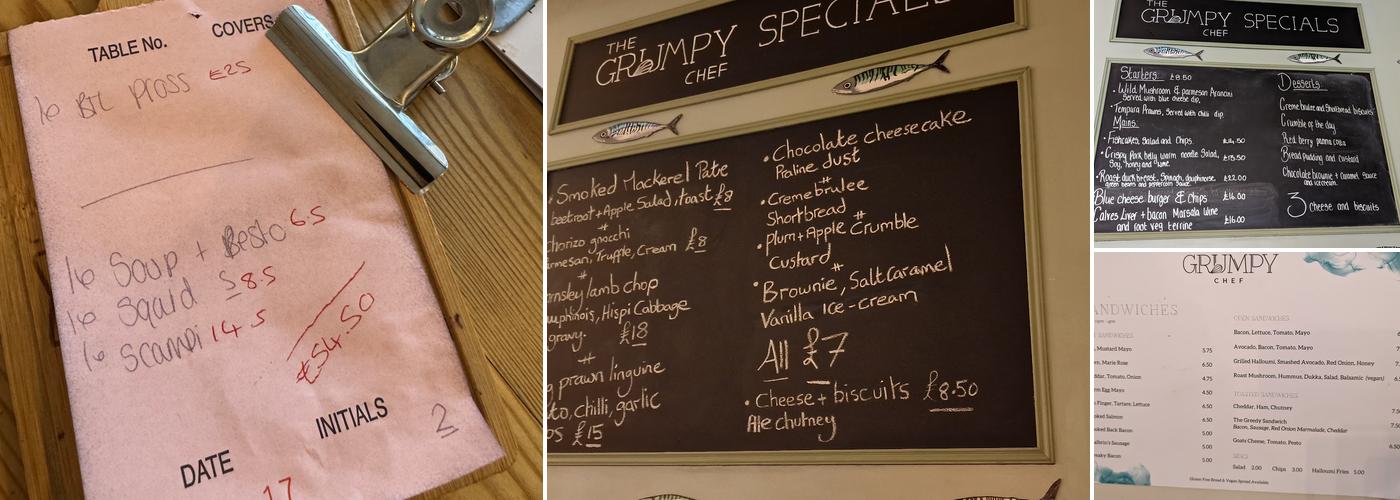 TABLE No. COVERS
1c BTL PROSS £25
1c Soup + Pesto 6.5
1c Squid S 8.5
1c Scampi 14.5
£54.50
INITIALS
2
DATE
17
THE
GRUMPY SPECIALS
CHEF
• Smoked Mackerel Pate
beetroot + Apple Salad, toast £8
chorizo gnocchi
Truffle, Cream £8
lamb chop
Hispi Cabbage
gravy. £18
prawn linguine
chilli, garlic
£15
• Chocolate cheesecake
Praline dust
• Creme brulee
Shortbread
• Plum + Apple Crumble
Custard
• Brownie, Salt Caramel
Vanilla Ice-cream
All £7
• Cheese + biscuits £8.50
Ale chutney
THE
GRUMPY SPECIALS
CHEF
Starters £8.50
• Wild Mushroom & parmesan Arancini
Served with blue cheese dip,
• Tempura Prawns, Served with chilli dip
Mains
• Fishcakes, Salad and Chips £14.50
• Crispy Pork belly warm noodle Salad, £15.50
Soy, honey and
• Roast duck breast, Spinach, dauphinoise £22.00
green beans and peppercorn Sauce
Blue cheese burger & chips £16.00
Calves liver + bacon Marsala wine
and root veg terrine £16.00
Desserts
Creme brulee and Shortbread biscuits
Crumble of the day
Red berry panna cotta
Bread pudding and custard
Chocolate brownie + Caramel Sauce
and icecream.
3 cheese and biscuits
GRUMPY
CHEF
Mustard Mayo 5.75
Marie Rose 6.50
Tomato, Onion 4.75
Egg Mayo 4.50
Finger, Tartare, Lettuce 6.50
Salmon 6.50
Back Bacon 5.00
Sausage 5.00
Bacon 5.00
OPEN SANDWICHES
Bacon, Lettuce, Tomato, Mayo
Avocado, Bacon, Tomato, Mayo
Grilled Halloumi, Smashed Avocado, Red Onion, Honey
Roast Mushroom, Hummus, Dukka, Salad, Balsamic (vegan)
TOASTED SANDWICHES
Cheddar, Ham, Chutney
The Greedy Sandwich
Bacon, Sausage, Red Onion Marmalade, Cheddar
Goats Cheese, Tomato, Pesto 6.50
SIDES
Salad 2.00 Chips 3.00 Halloumi Fries 5.00
Gluten Free Bread & Vegan Spread Available